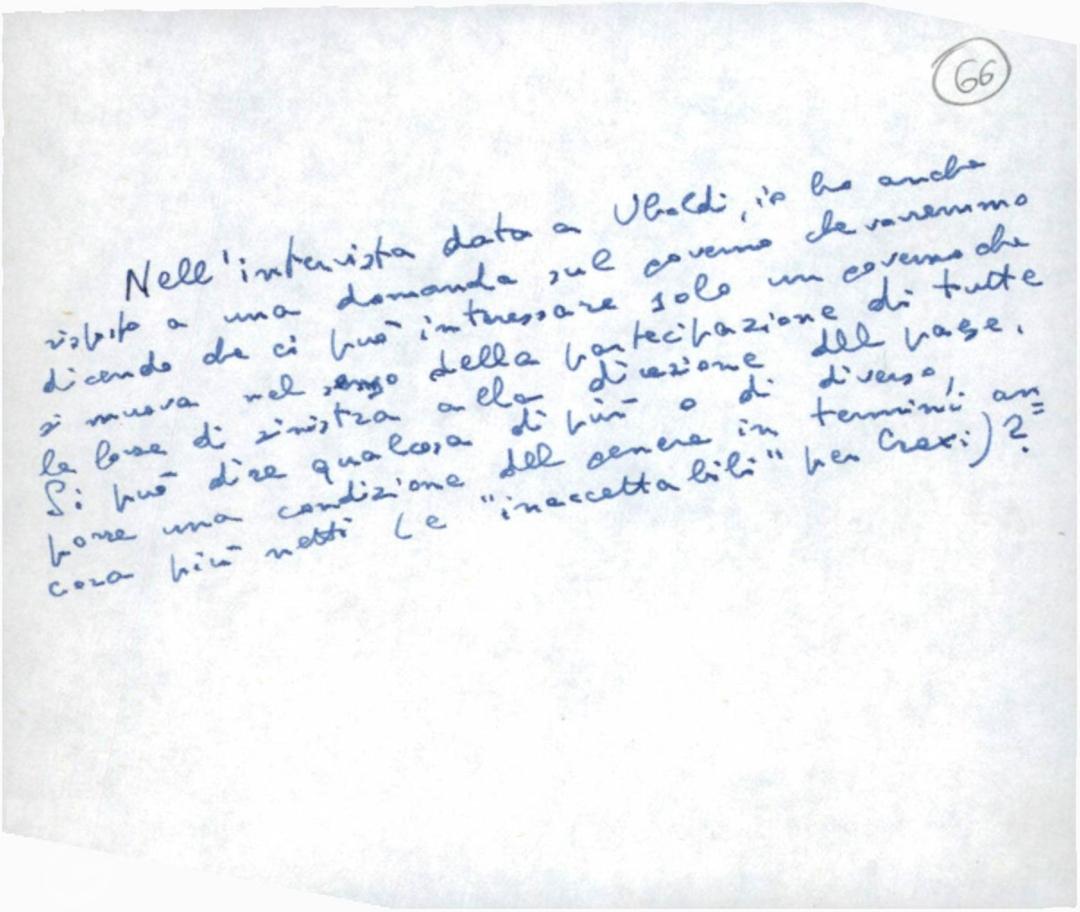 66
Nell'intervista data a Ubaldi, io ho anche
risposto a una domanda sul governo che vorremmo
dicendo che ci può interessare solo un governo che
si muova nel senso della partecipazione di tutte
le forze di sinistra alla direzione del paese.
Si può dire qualcosa di più o di diverso,
porre una condizione del genere in termini an=
cora più netti (e "inaccettabili" per Craxi)?